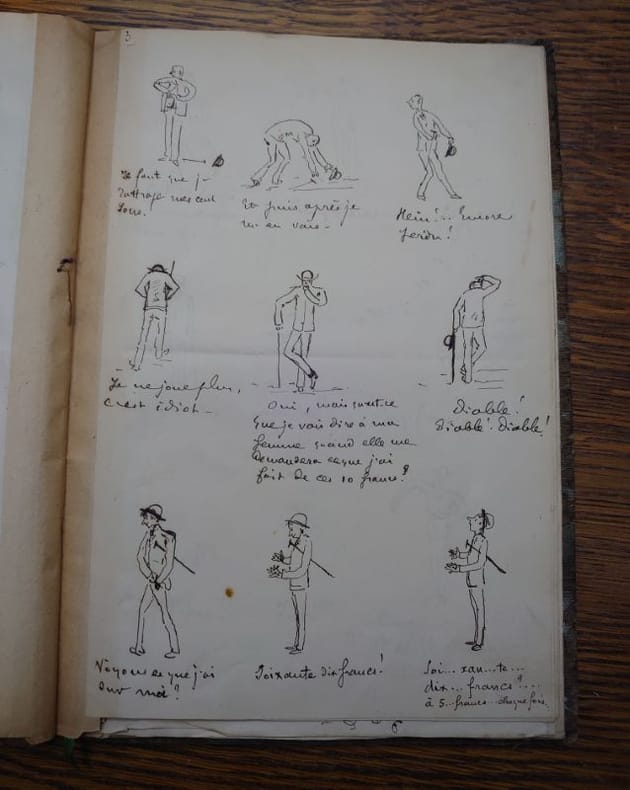 3
Il faut que je
rattrape mes cent
sous.
Et puis après je
m'en vais -
Hein!.. Encore
perdu!
Je ne joue plus,
c'est idiot -
Oui, mais qu'est-ce
que je vais dire à ma
femme quand elle me
demandera ce que j'ai
fait de ces 10 francs?
Diable!
Diable! Diable!
Voyons ce que j'ai
sur moi?
Soixante dix francs!
Soi... xan... te...
dix... francs?...
à 5... francs... chaque fois.